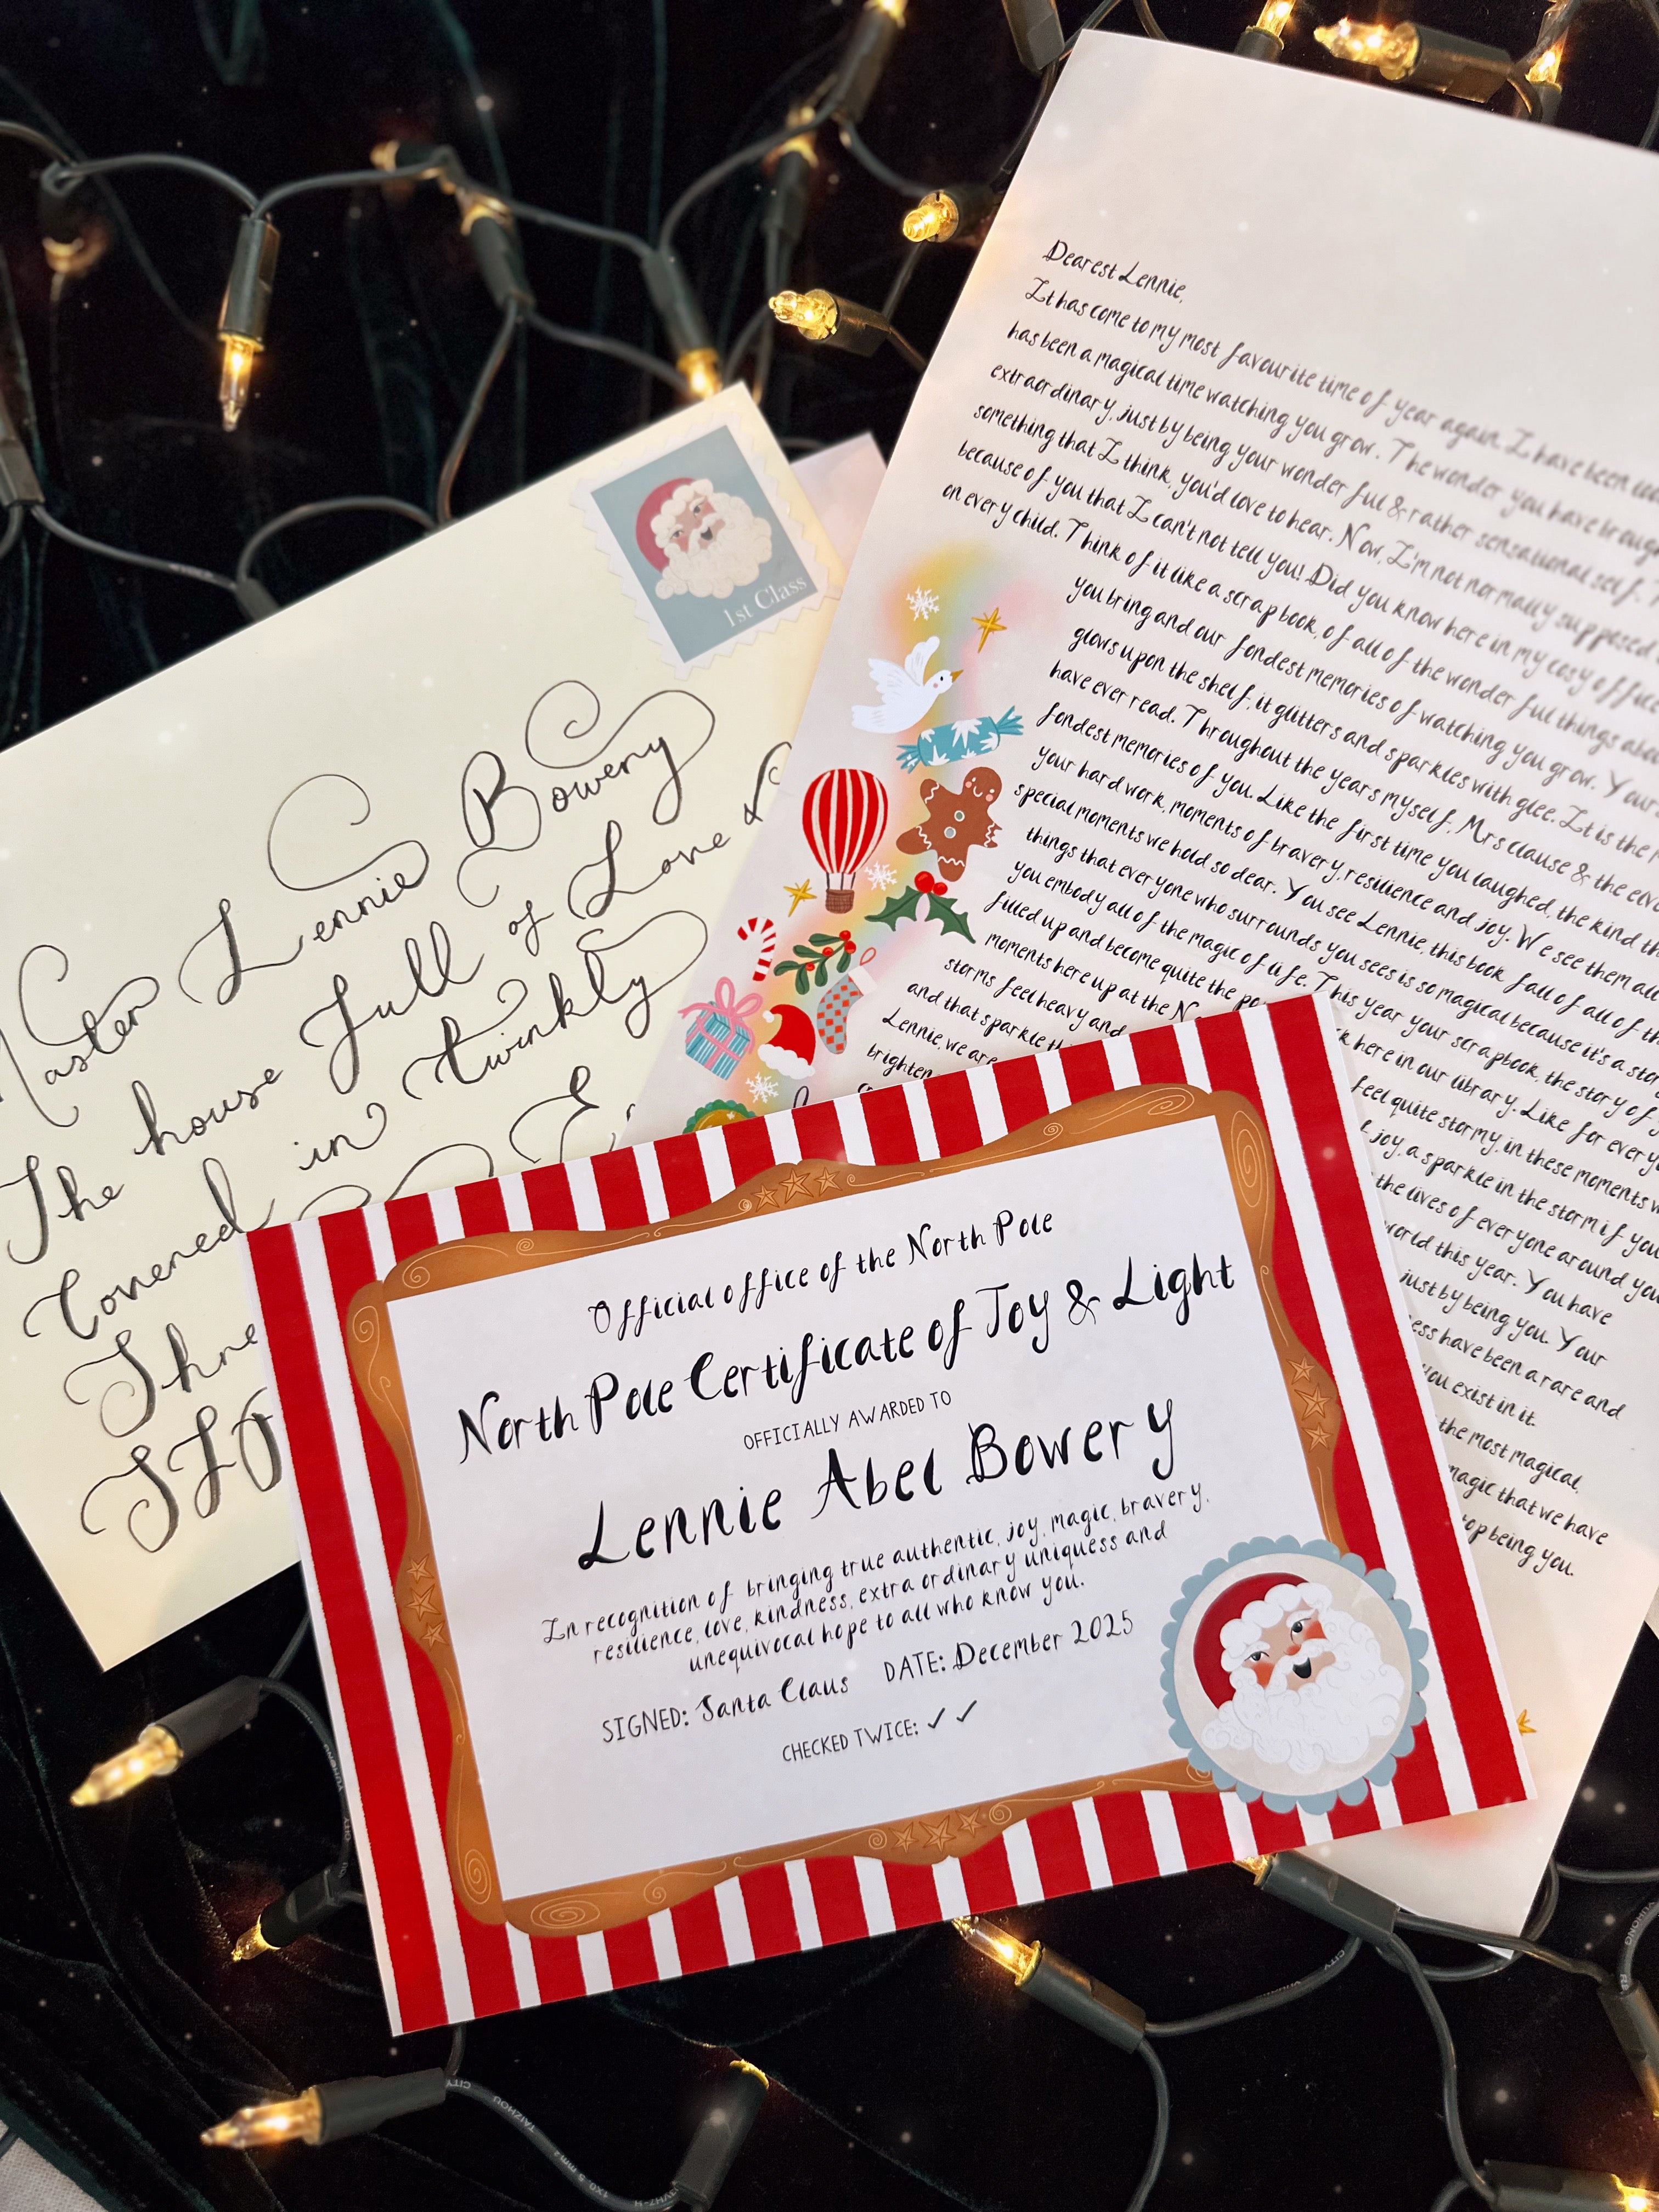 1st Class
Master Lennie Bowery
The house full of Love &
Covered in twinkly
Dearest Lennie,
It has come to my most favourite time of year again. I have been
has been a magical time watching you grow. The wonder you have brough
extraordinary, just by being your wonderful & rather sensational self.
something that I think, you'd love to hear. Now, I'm not normally supposed
because of you that I can't not tell you! Did you know here in my cosy office
on every child. Think of it like a scrap book, of all of the wonderful things abou
you bring and our fondest memories of watching you grow. Yours
glows upon the shelf, it glitters and sparkles with glee. It is the
have ever read. Throughout the years myself, Mrs Clause & the elve
fondest memories of you. Like the first time you laughed, the kind th
your hard work, moments of bravery, resilience and joy. We see them all
special moments we hold so dear. You see Lennie, this book full of all of th
things that everyone who surrounds you sees is so magical because it's a stor
you embody all of the magic of life. This year your scrapbook, the story of
filled up and become quite the po k here in our library. Like for every
moments here up at the N feel quite stormy, in these moments w
storms feel heavy and joy, a sparkle in the storm if you
and that sparkle th the lives of everyone around you
Lennie, we are world this year. You have
brighten just by being you. Your
ess have been a rare and
you exist in it.
the most magical,
magic that we have
top being you.
Official office of the North Pole
North Pole Certificate of Joy & Light
OFFICIALLY AWARDED TO
Lennie Abel Bowery
In recognition of bringing true authentic, joy, magic, bravery,
resilience, love, kindness, extra ordinary uniquess and
unequivocal hope to all who know you.
SIGNED: Santa Claus DATE: December 2025
CHECKED TWICE: ✓ ✓